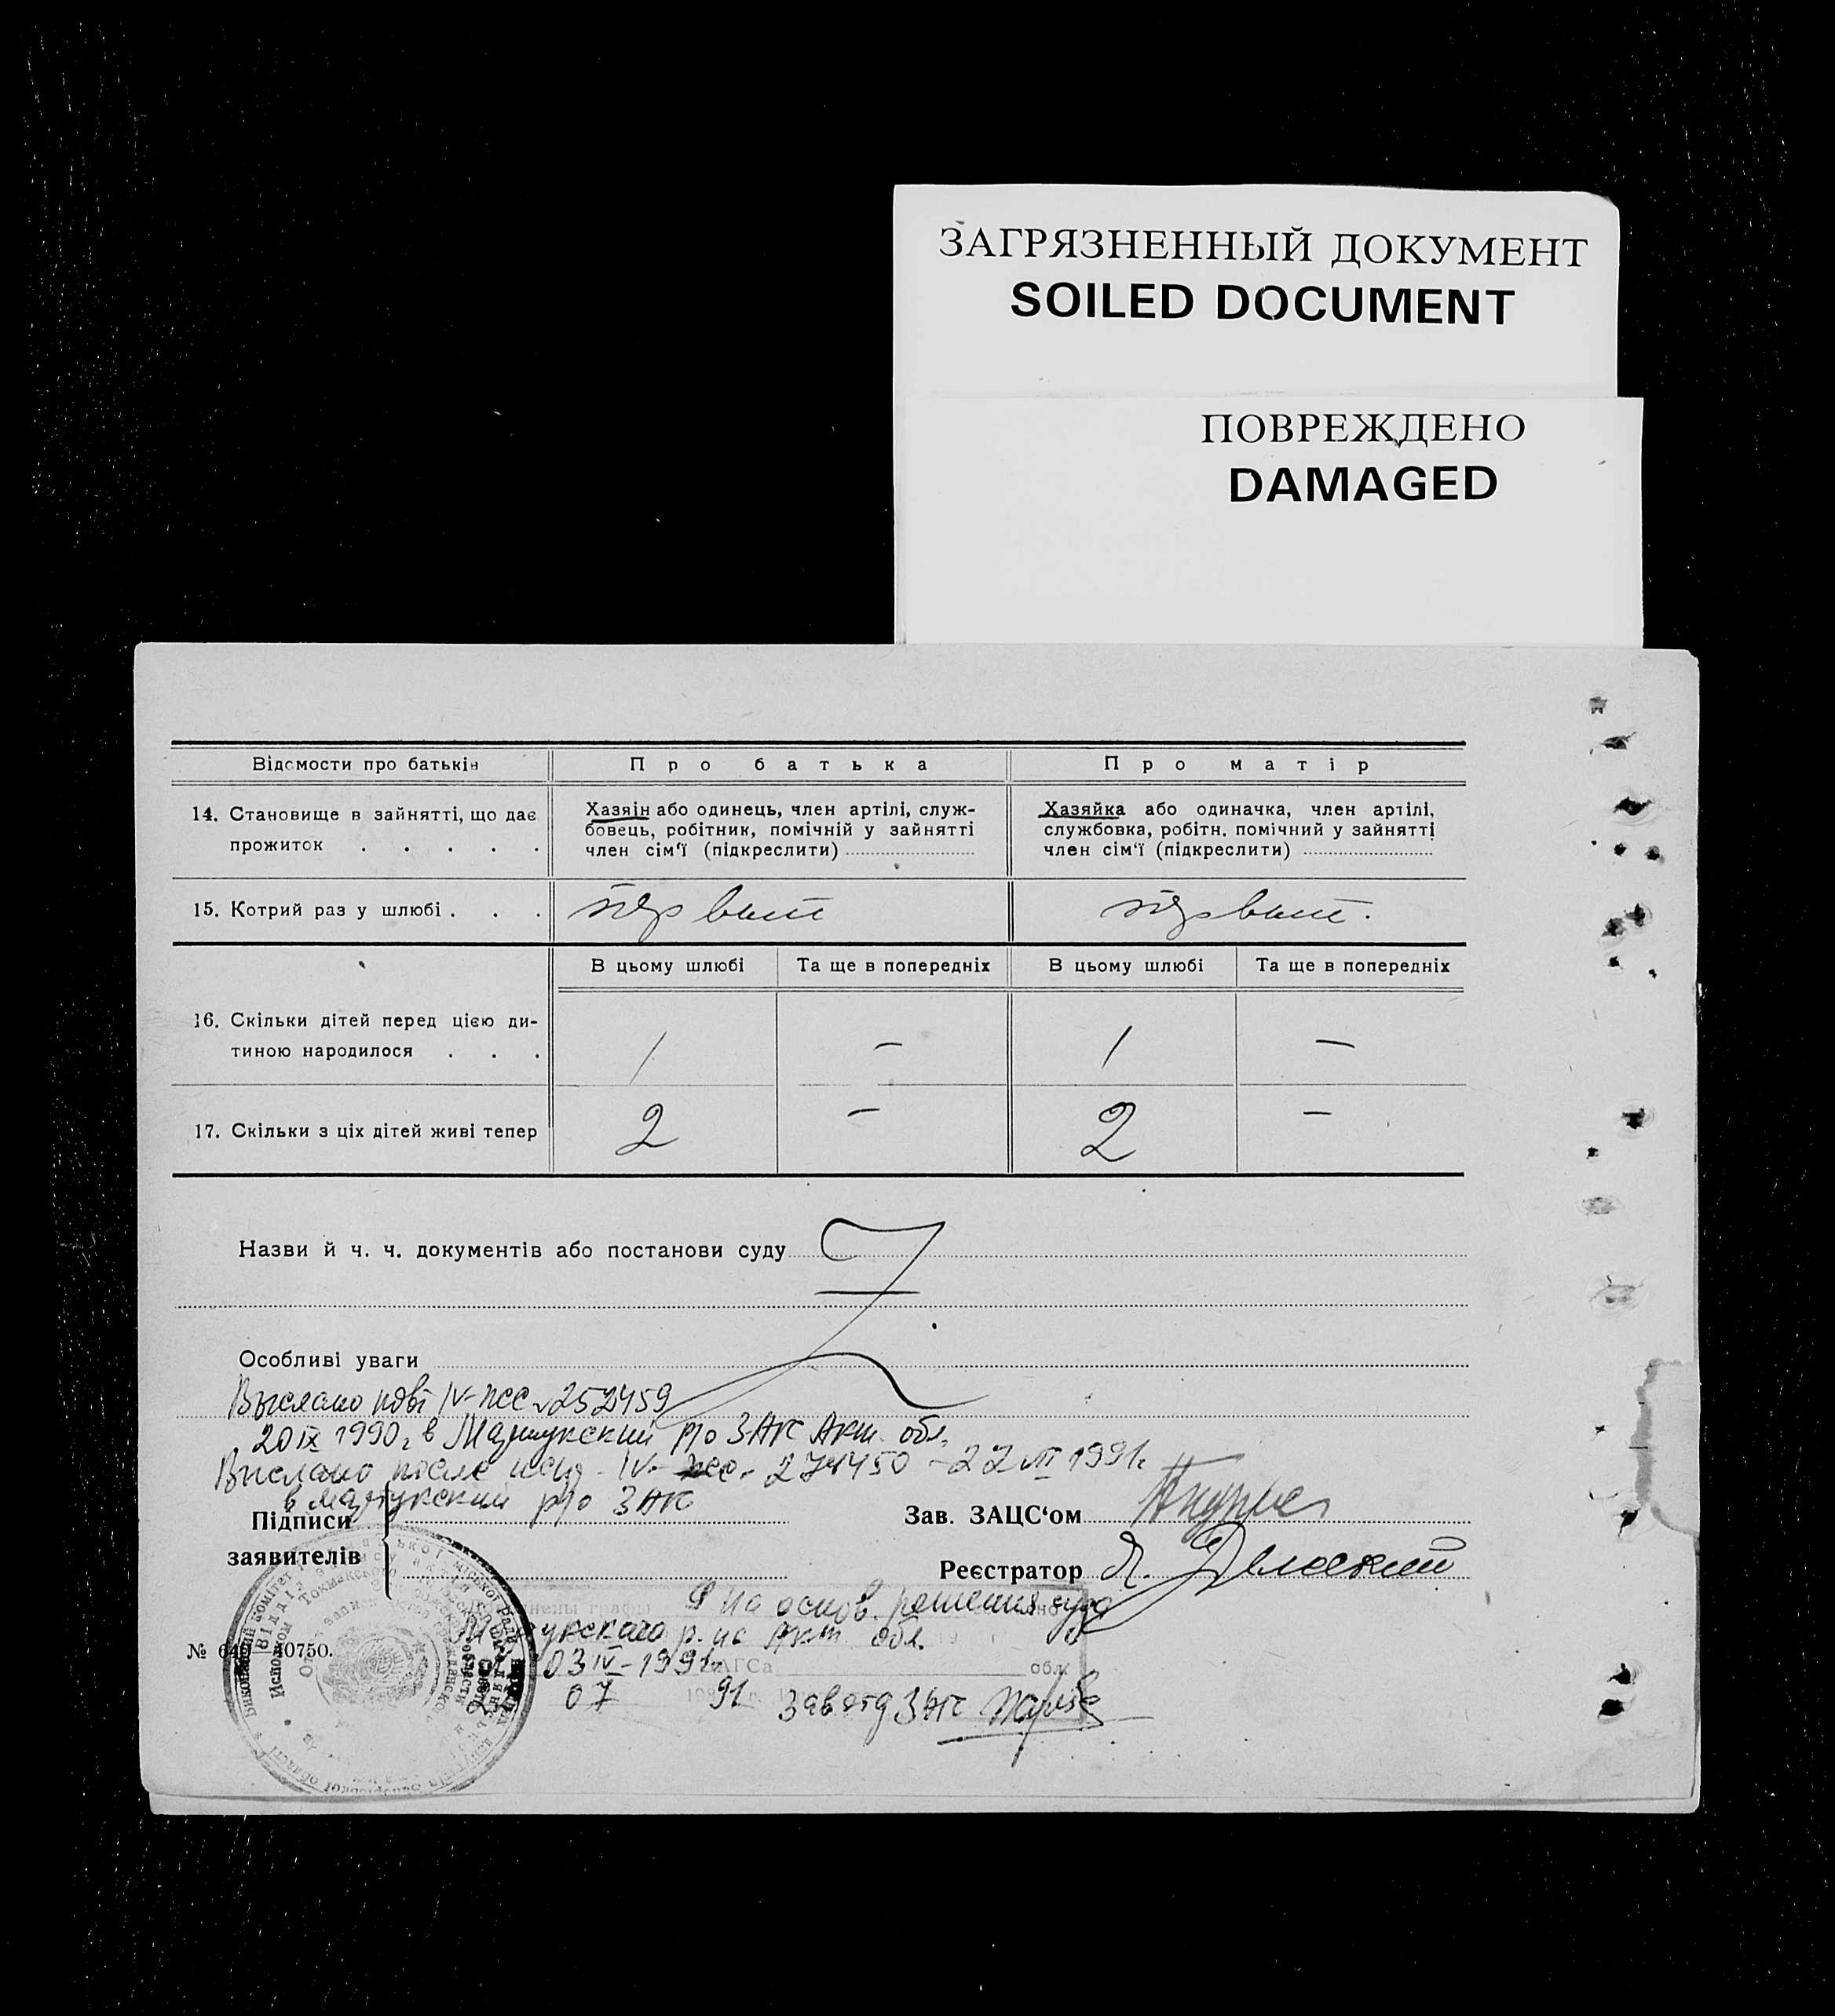 ЗАГРЯЗНЕННЫЙ ДОКУМЕНТ
SOILED DOCUMENT
ПОВРЕЖДЕНО
DAMAGED
Відомости про батьків
Про батька
Про матір
14. Становище в зайнятті, що дає
прожиток . . . . .
Хазяін або одинець, член артілі, служ-
бовець, робітник, помічній у зайнятті
член сім'ї (підкреслити)
Хазяйка або одиначка, член артілі,
службовка, робітн. помічний у зайнятті
член сім'ї (підкреслити)
15. Котрий раз у шлюбі . . .
первый
первый.
В цьому шлюбі
Та ще в попередніх
В цьому шлюбі
Та ще в попередніх
16. Скільки дітей перед цією ди-
тиною народилося . . .
1
—
1
—
17. Скільки з ціх дітей живі тепер
2
—
2
—
Назви й ч. ч. документів або постанови суду
Особливі уваги
Выслано повт IV-ЖС № 252459
20 IX 1990 г в Мартукский р/о ЗАГС Акт. обл.
Выслано после испр. IV- 274450 - 22 VII 1991г
в Мартукский р/о ЗАГС
Підписи
заявителів
Зав. ЗАЦС'ом
Реєстратор
на основ. решения суда
Мартукского р-на Акт обл.
03 IV-1991г.
07 91 Зав отд ЗАГС
АГСа обл.
№ 10750.